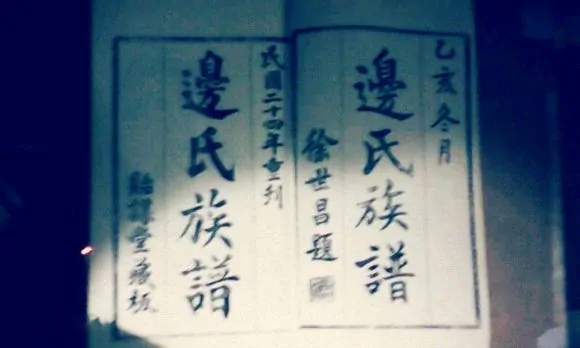 乙亥冬月
邊氏族譜
徐世昌題
民國二十四年重刊
邊氏族譜
貽謀堂藏板